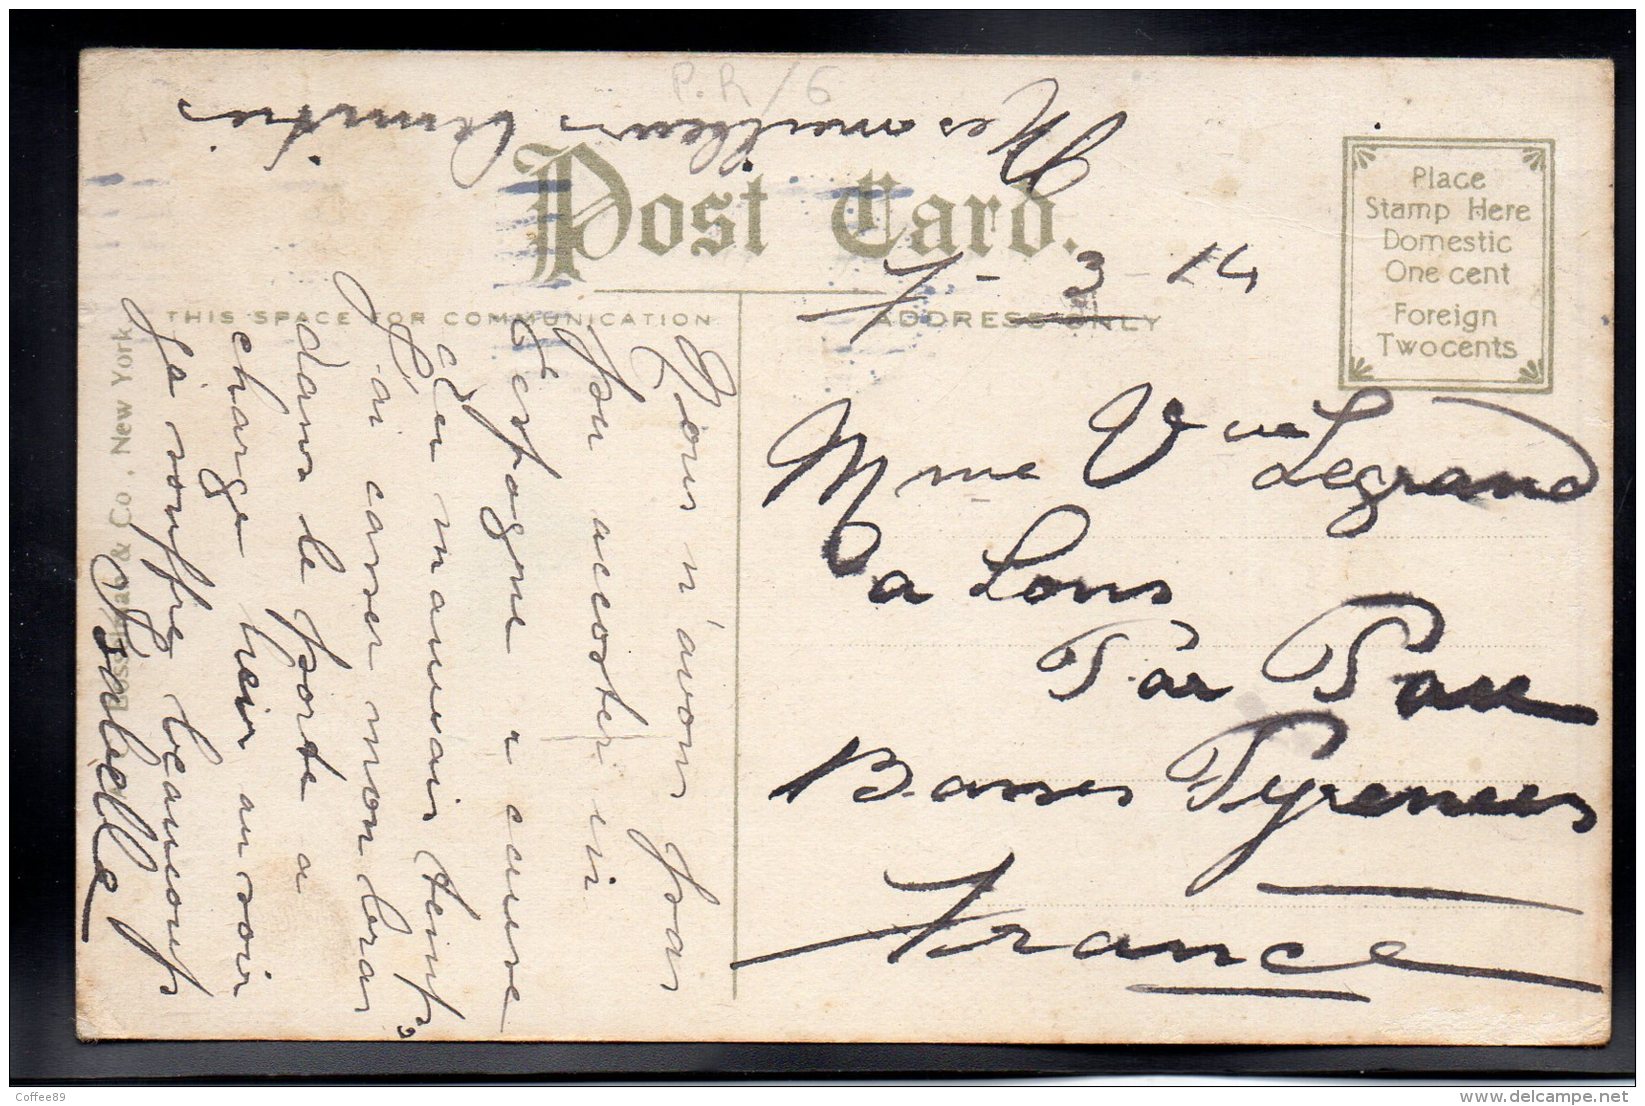 P.R/6
Mes meilleurs amitiés
Post Card.
7-3-14
THIS SPACE FOR COMMUNICATION
ADDRESS ONLY
Place
Stamp Here
Domestic
One cent
Foreign
Two cents
Mme Vve Legrand
a Lons
Par Pau
Basses Pyrenees
France
Nous n'avons pas
pu accoster in
Espagne a cause
du mauvais temps
J'ai casser mon bras
dans le porte a
charge hier au soir
Ja souffre beaucoup
Isabelle
& Co., New York
Coffee89
delcampe.net